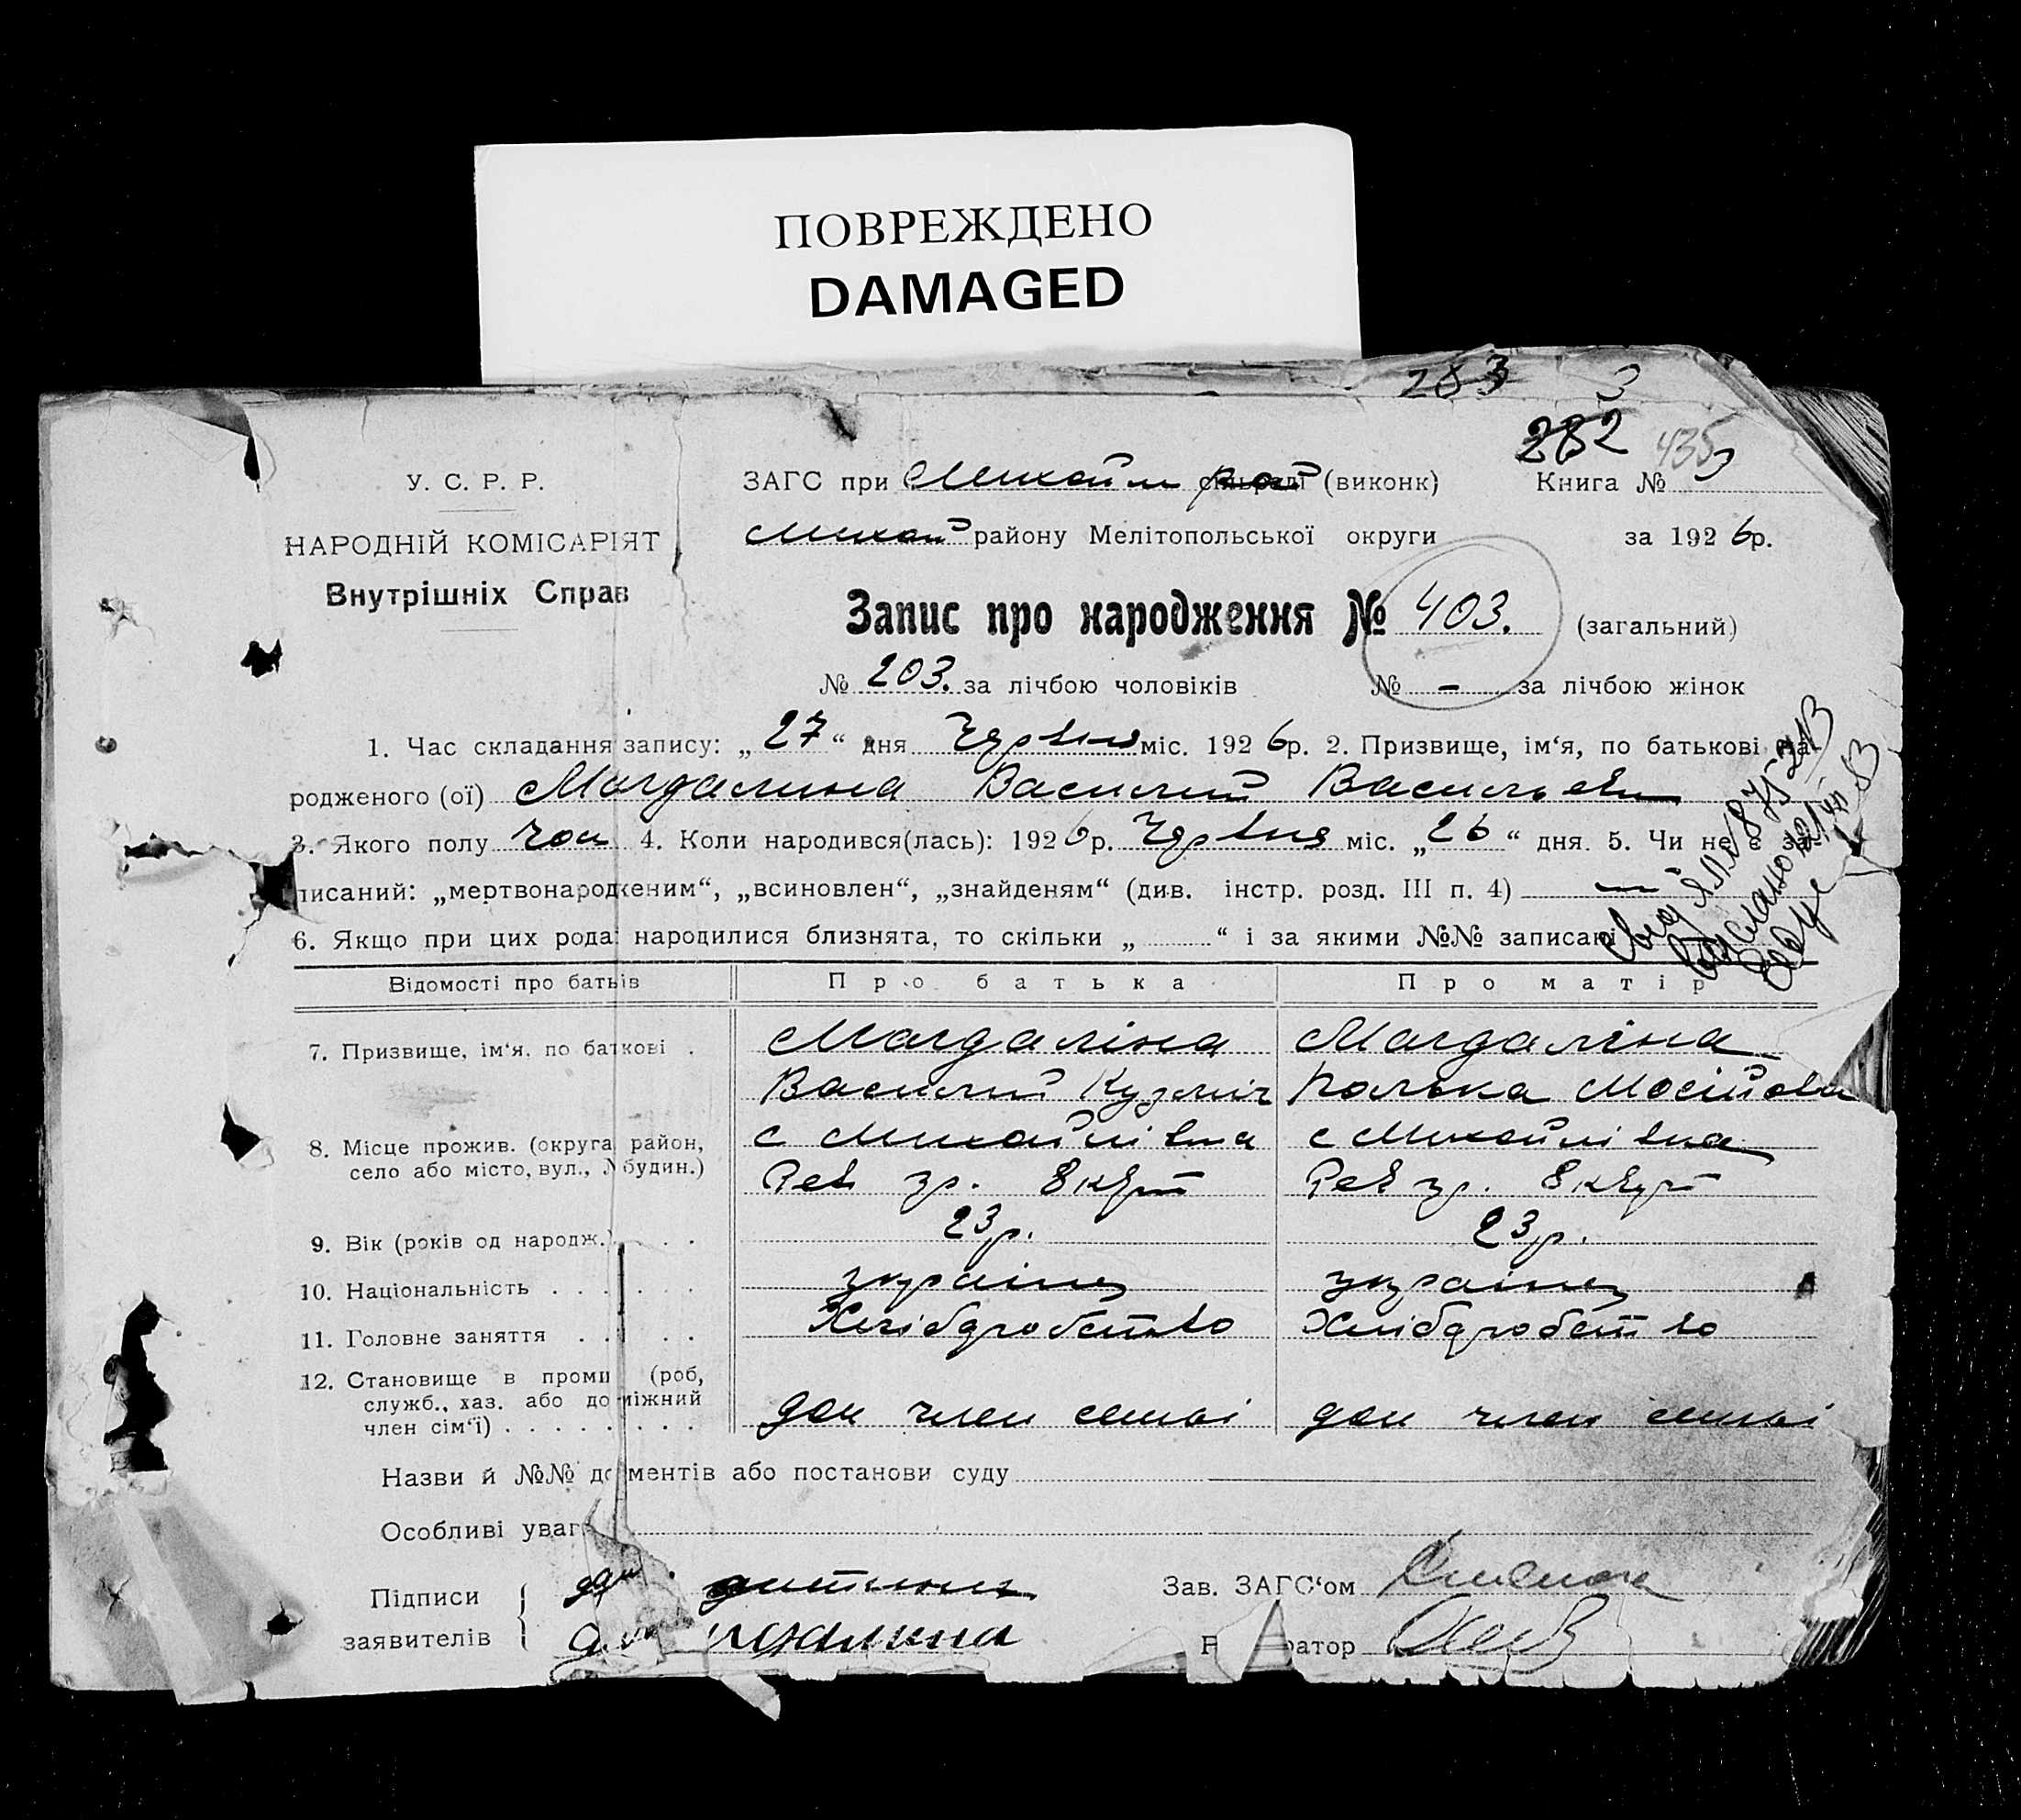 ПОВРЕЖДЕНО
DAMAGED
283 3
282 435
У. С. Р. Р.
ЗАГС при Михайл рай (виконк) Книга № 3
НАРОДНІЙ КОМІСАРІЯТ
Михай району Мелітопольської округи за 1926р.
Внутрішніх Справ
Запис про народження № 403. (загальний)
№ 203. за лічбою чоловіків № – за лічбою жінок
1. Час складання запису: „27“ дня Червня міс. 1926р. 2. Призвище, ім‘я, по батькові на-
родженого (ої) Магдалина Василий Васильевич
3. Якого полу чол 4. Коли народився(лась): 1926р. Червня міс. „26“ дня. 5. Чи не є за-
писаний: „мертвонародженим“, „всиновлен“, „знайденям“ (див. інстр. розд. III п. 4) —
6. Якщо при цих родах народилися близнята, то скільки „ “ і за якими №№ записані
Відомості про батьків Про батька Про матір
7. Призвище, ім‘я, по батькові . Магдаліна Магдаліна
Василий Кузмич Полька Мосійовна
8. Місце прожив. (округа, район, с Михайлівка с Михайлівка
село або місто, вул., № будин.) Рев гр. 8 кварт Рев гр. 8 кварт
9. Вік (років од народж.) . . . 23 р. 23 р.
10. Національність . . . . . . україн україн
11. Головне заняття . . . . . Хлібдробство Хлібдробство
12. Становище в проми (роб,
служб., хаз. або доміжний
член сім‘ї) . . . . . . . . дом член семьі дом член семьі
Назви й №№ документів або постанови суду
Особливі уваги
Підписи Зав. ЗАГС‘ом
заявителів Реєстратор